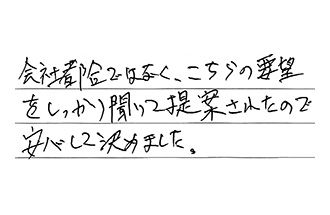 会社都合ではなく、こちらの要望
をしっかり聞いて提案されたので
安心して決めました。